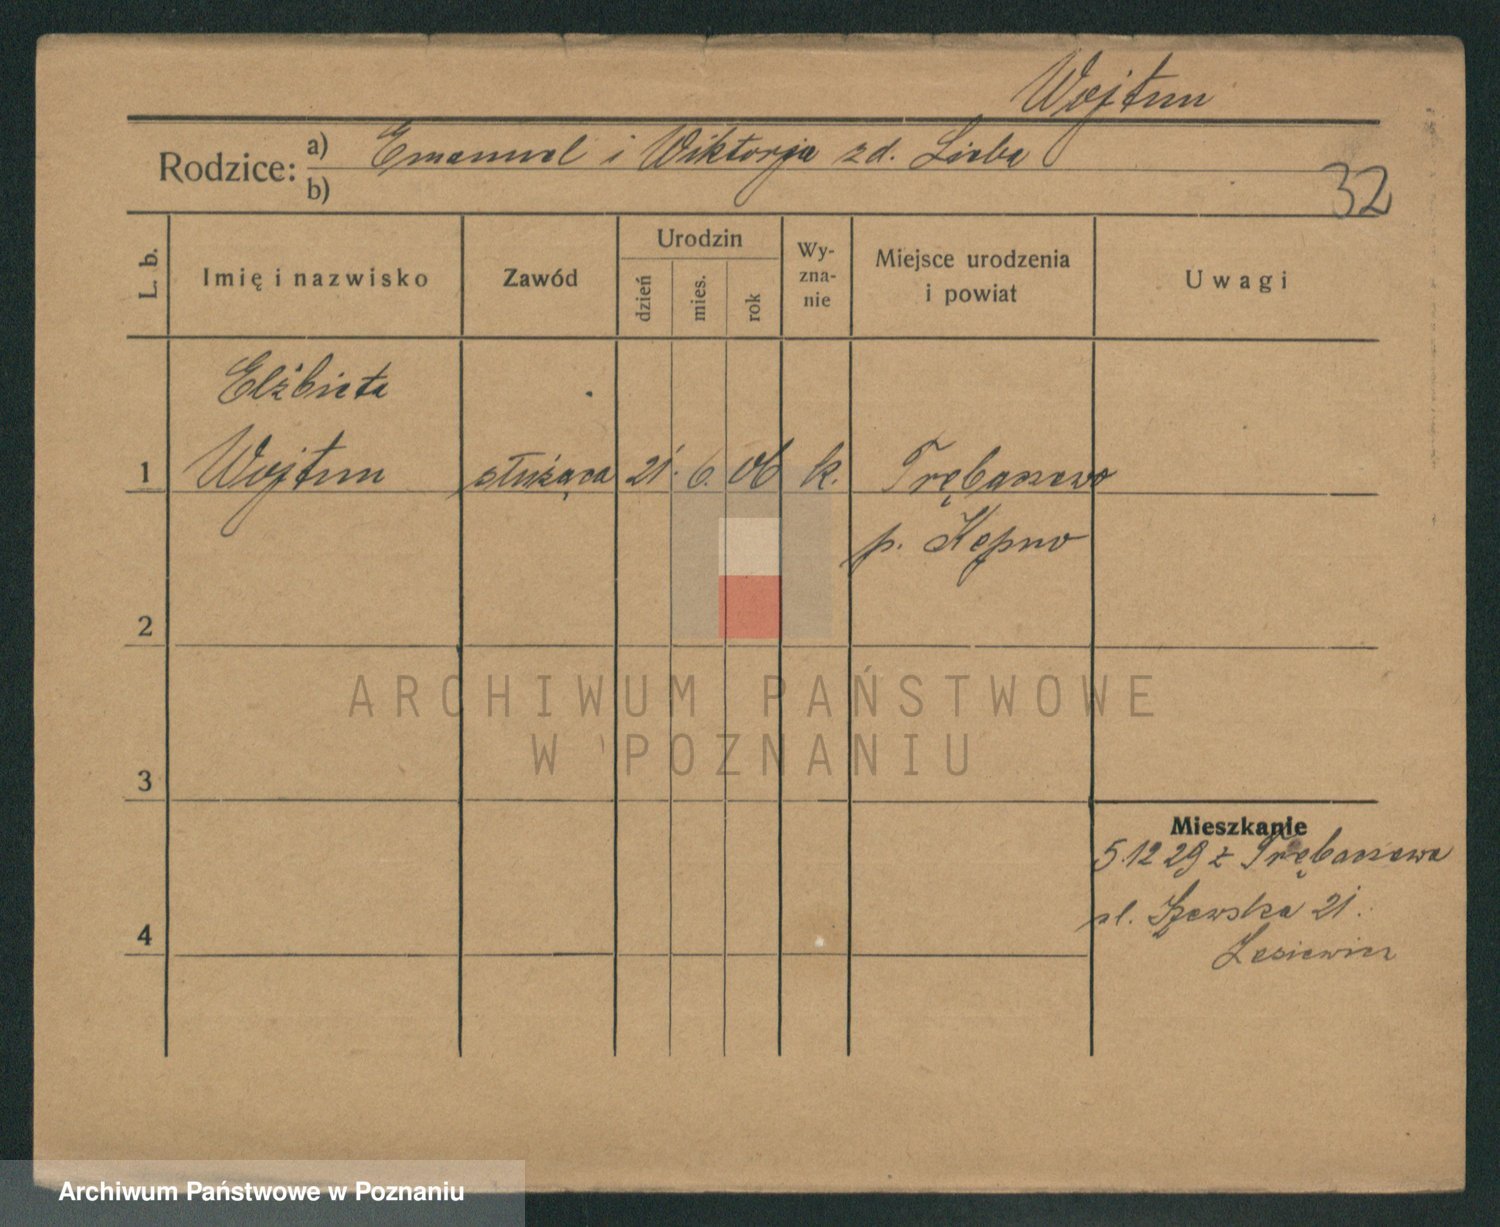 Wojtun
Rodzice: a) Emanuel i Wiktorja zd. Lieba
b)
32
L. b.
Imię i nazwisko
Zawód
Urodzin
dzień
mies.
rok
Wy-
zna-
nie
Miejsce urodzenia
i powiat
Uwagi
Elżbieta
1 Wojtun służąca 21. 6. 06 k. Trębaczewo
p. Kępno
2
3
4
Mieszkanie
5.12 29 z Trębaczewa
ul. Szewska 21.
ARCHIWUM PAŃSTWOWE
W POZNANIU
Archiwum Państwowe w Poznaniu